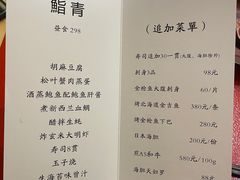 鮨青
昼食 298
胡麻豆腐
松叶蟹肉蒸蛋
酒蒸鲍鱼配鲍鱼肝酱
煮新西兰血鲷
醋拌生蚝
炸玄米大明虾
寿司8贯
玉子烧
生海苔味曾汁
（追加菜單）
寿司追加30一贯(大腹、海胆除外)
刺身3品 98元
金枪鱼大腹刺身 60/片
烤北海道金吉鱼 380元/条
烤金枪鱼下巴 280元
日本海胆 200元/份
煎A5和牛 580元/100g
海胆天妇罗 88元